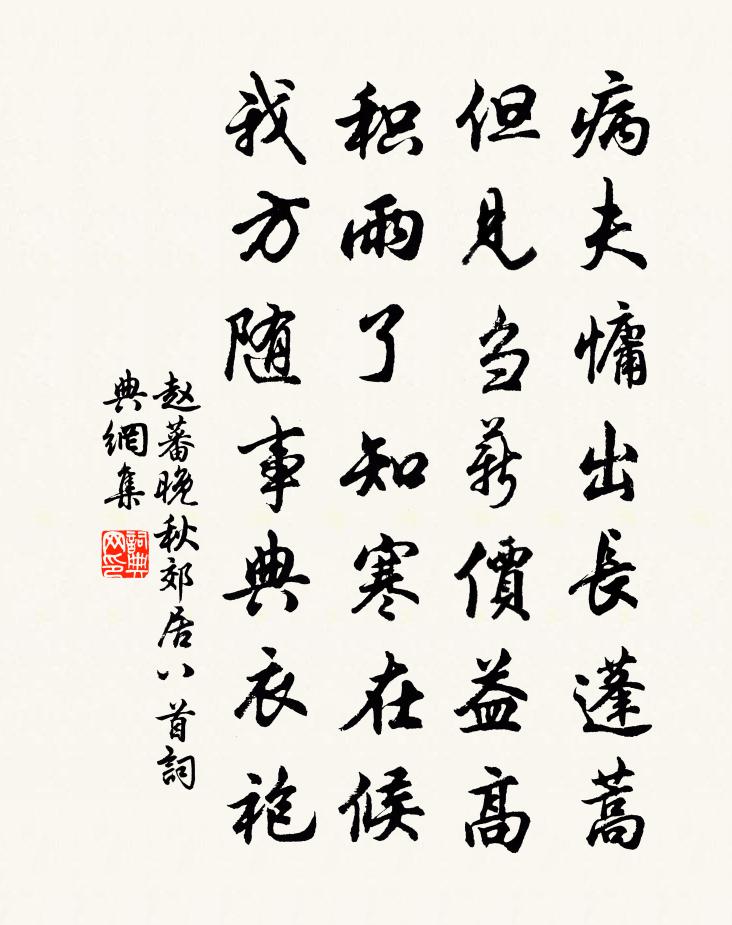 病夫慵出長蓬蒿
但見芻薪價益高
积雨了知寒在候
我方随事典衣袍
赵蕃晚秋郊居八首詞
典網集
詞典网印